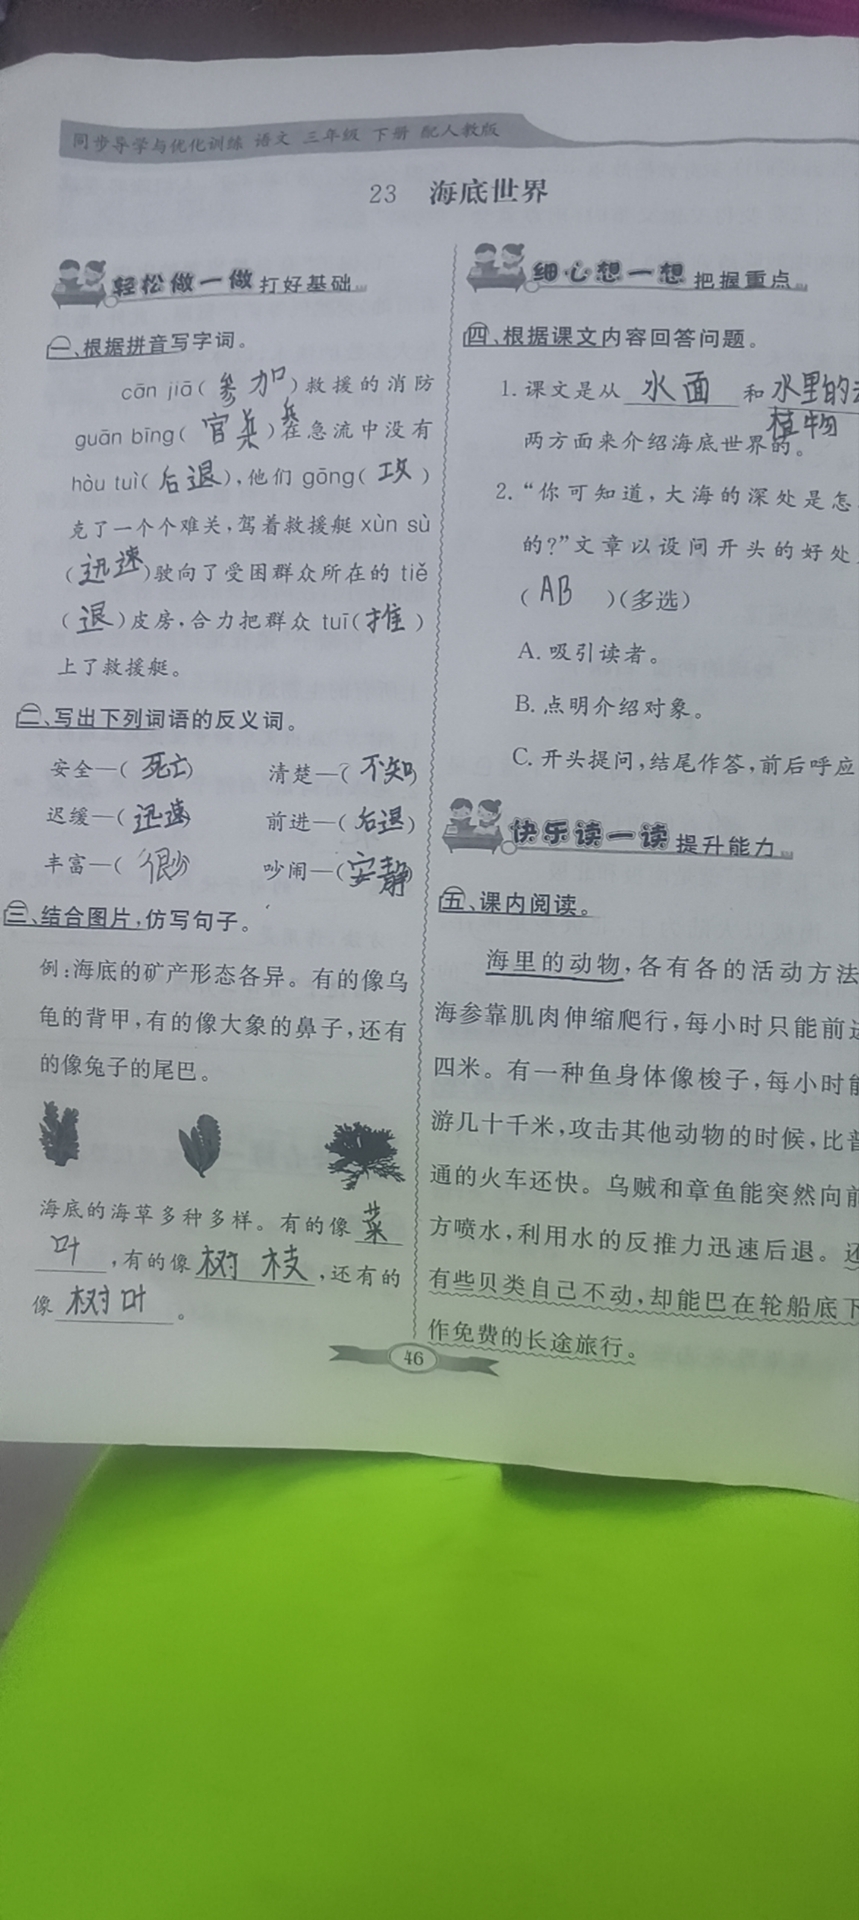 同步导学与优化训练 语文 三年级 下册 配人教版
23 海底世界
轻松做一做 打好基础
一、根据拼音写字词。
cān jiā(参加)救援的消防
guān bīng(官兵)在急流中没有
hòu tuì(后退),他们gōng(攻)
克了一个个难关,驾着救援艇 xùn sù
(迅速)驶向了受困群众所在的 tiě
(退)皮房,合力把群众 tuī(推)
上了救援艇。
二、写出下列词语的反义词。
安全—(死亡) 清楚—(不知)
迟缓—(迅速) 前进—(后退)
丰富—(很少) 吵闹—(安静)
三、结合图片,仿写句子。
例:海底的矿产形态各异。有的像乌
龟的背甲,有的像大象的鼻子,还有
的像兔子的尾巴。
海底的海草多种多样。有的像菜
叶,有的像树枝,还有的
像树叶。
细心想一想 把握重点
四、根据课文内容回答问题。
1. 课文是从 水面 和 水里的
植物
两方面来介绍海底世界的。
2. “你可知道,大海的深处是怎
的?”文章以设问开头的好处
(AB)(多选)
A. 吸引读者。
B. 点明介绍对象。
C. 开头提问,结尾作答,前后呼应
快乐读一读 提升能力
五、课内阅读。
海里的动物,各有各的活动方法
海参靠肌肉伸缩爬行,每小时只能前进
四米。有一种鱼身体像梭子,每小时能
游几十千米,攻击其他动物的时候,比普
通的火车还快。乌贼和章鱼能突然向前
方喷水,利用水的反推力迅速后退。还
有些贝类自己不动,却能巴在轮船底下
作免费的长途旅行。
46